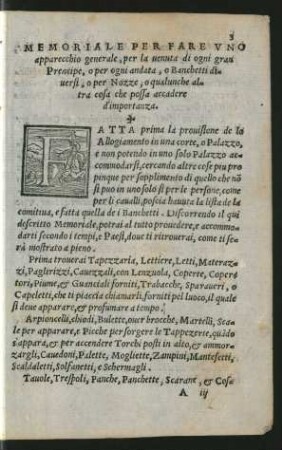 3
MEMORIALE PER FARE VNO
apparecchio generale, per la uenuta di ogni gran
Prencipe, o per ogni andata, o Banchetti di
uersi, o per Nozze, o qualunche al-
tra cosa che possa accadere
d'importanza.
FATTA prima la prouisione de lo
Allogiamento in una corte, o Palazzo,
e non potendo in uno solo Palazzo ac-
commodarsi, cercando altre cose piu pro
pinque per supplimento di quello che nō
si puo in uno solo sì per le persone, come
per li caualli, poscia hauuta la lista de la
comitiua, e fatta quella de i Banchetti. Discorrendo il qui
descritto Memoriale, potrai al tutto prouedere, e accommo-
darti secondo i tempi, e Paesi, doue ti ritrouerai, come ti serà
mostrato a pieno.
Prima trouerai Tapezzaria, Lettiere, Letti, Materaz-
zi, Paglerizzi, Cauezzali, con Lenzuola, Coperte, Coper
tori, Piume, & Guanciali forniti, Trabacche, Sparaueri, o
Capoletti, che ti piaccia chiamarli forniti pel luoco, il quale
si deue apparare, & profumare a tempo.
Arpioncelli, chiodi, Bulette, ouer brocche, Martelli, Sca-
le per apparare, e Picche per sorgere le Tappezerie, quādo
s'appara, & per accendere Torchi posti in alto, & ammor-
zargli, Cauedoni, Palette, Mogliette, Zampini, Mantesetti,
Scaldaletti, Solfanetti, e Schermagli.
Tauole, Trespoli, Panche, Panchette, Scarane, & Cosa
A iij